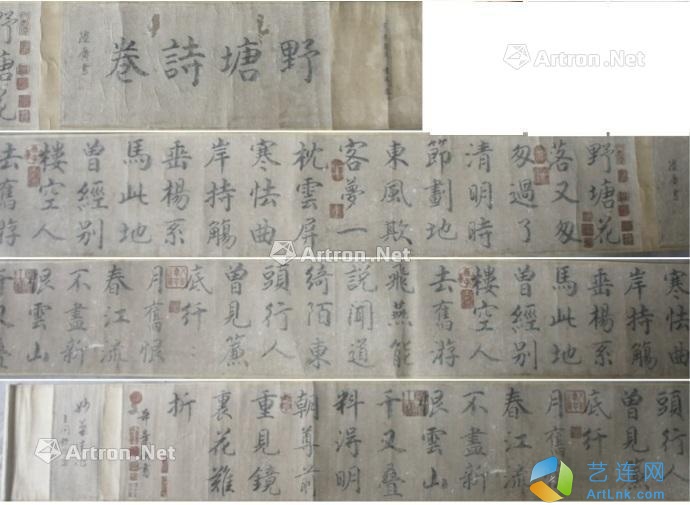 野塘詩卷
野塘花
Artron.Net
Artron.Net
野塘花
落又匆
匆過了
清明時
節劃地
東風欺
客夢一
枕雲屏
寒怯曲
岸持觴
垂楊系
馬此地
曾經別
樓空人
去舊游
Artron.Net
寒怯曲
岸持觴
垂楊系
馬此地
曾經別
樓空人
去舊游
飛燕能
說聞道
綺陌東
頭行人
曾見簾
底纤
月舊恨
春江流
不盡新
恨雲山
千又疊
Artron.Net
Artron.Net
頭行人
曾見簾
底纤
月舊恨
春江流
不盡新
恨雲山
千又疊
料得明
朝尊前
重見鏡
裏花難
折
Artron.Net
艺连网
ArtLnk.com